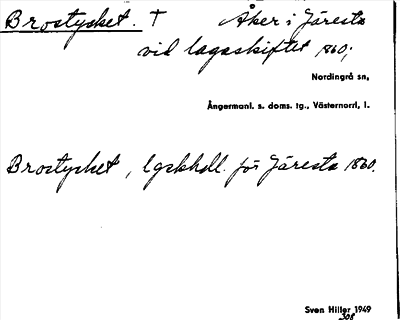 Brostycket. † Åker i Järesta
vid lagaskiftet 1860;
Nordingrå sn,
Ångermanl. s. doms. tg., Västernorrl. l.
Brostycket, lgskhdl. för Järesta 1860.
Sven Hiller 1949
308